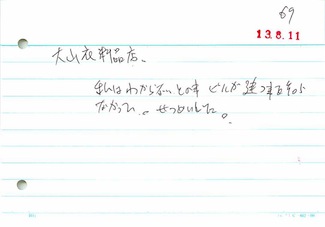 69
13.8.11
大山衣料品店、
私はわからないとの事 ビルが建つ事も知ら
なかった。せつめいした。